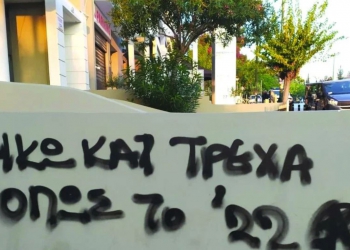 ΗΚΩ ΚΑΙ ΤΡΕΧΑ
ΟΠΩΣ ΤΟ '22